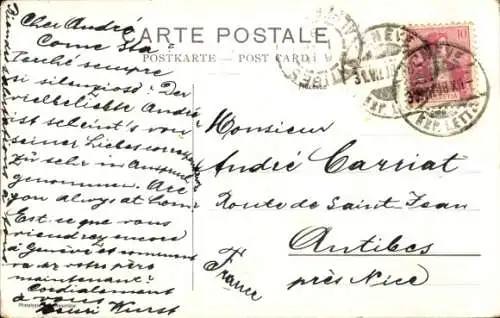 CARTE POSTALE
POSTKARTE - POST CARD
Cher André
Come Sta
Perché sempre
si silenzioso? Der
vielbeliebte André
ist scheint's von
seiner Liebes
zu sehr in Anspruch
genommen. Are
you always at
Est ce que vous
viendrez encore
à Genève et comment
va votre père
maintenant?
Cordialement
à vous
Henri Kurst
Monsieur
André Carriat
Route de Saint Jean
Antibes
près Nice
France
10
GENÈVE
31.VII
EXP. LETT.